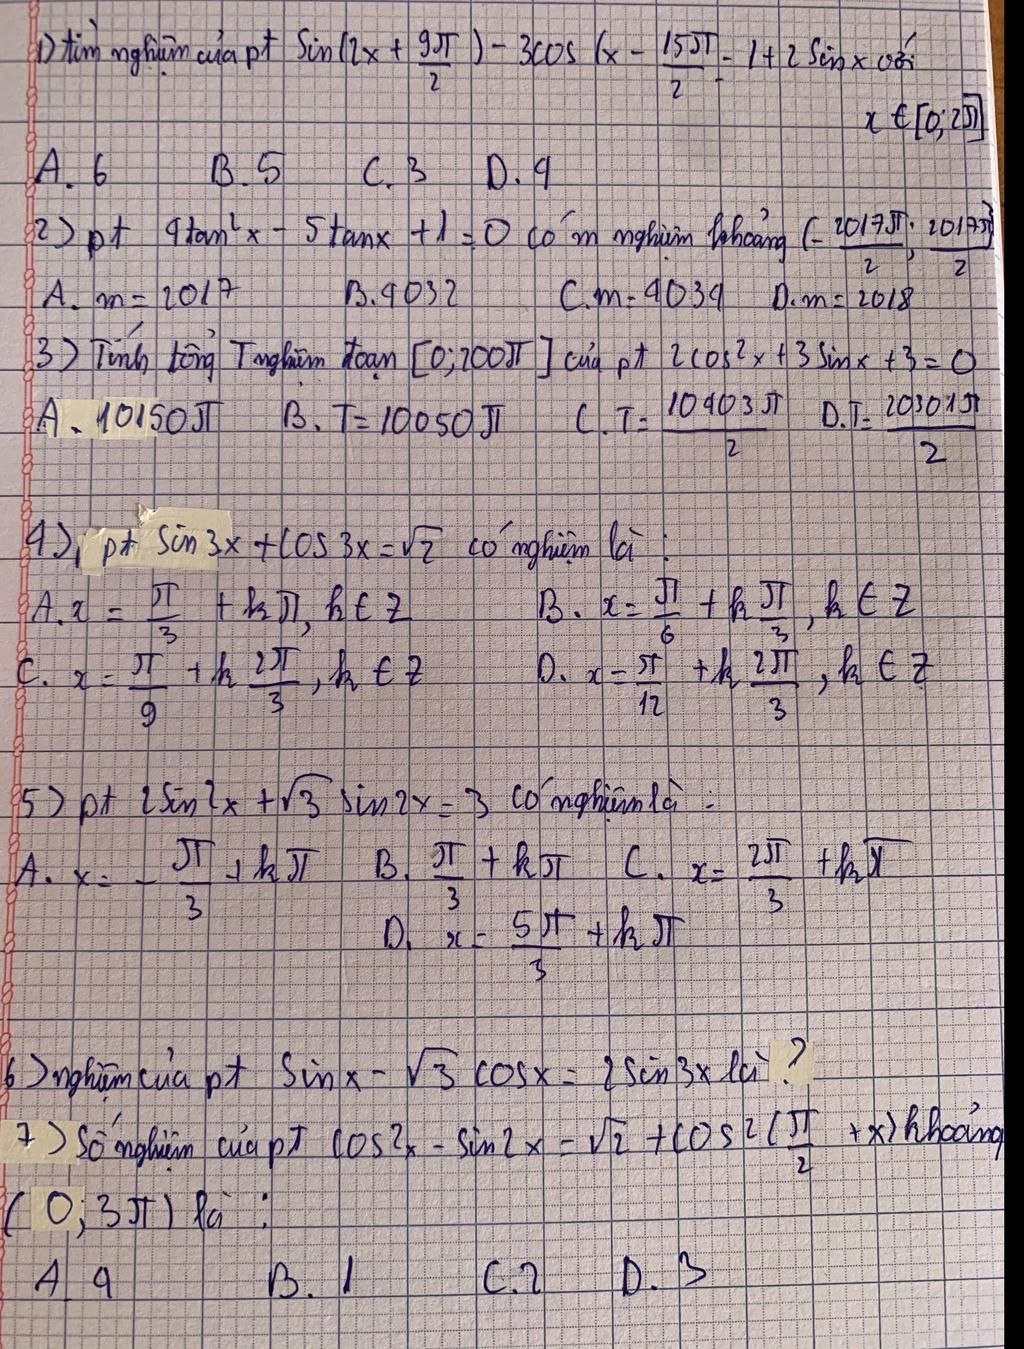 1) tìm nghiệm của pt Sin(2x + 9π/2) - 3cos(x - 15π/2 = 1 + 2Sinx với
x ∈ [0; 2π]
A. 6 B. 5 C. 3 D. 4
2) pt 4tan²x - 5tanx + 1 = 0 có m nghiệm khoảng (-2017π/2; 2017π/2)
A. m = 2017 B. 4032 C. m = 4034 D. m = 2018
3) Tính tổng T nghiệm đoạn [0; 200π] của pt 2cos²x + 3Sinx + 3 = 0
A. 10150π B. T = 10050π C. T = 10403π/2 D. T = 20301π/2
4) pt Sin3x + cos3x = √2 có nghiệm là :
A. x = π/3 + kπ, k ∈ Z B. x = π/6 + kπ/3, k ∈ Z
C. x = π/9 + k2π/3, k ∈ Z D. x = π/12 + k2π/3, k ∈ Z
5) pt 2Sin²x + √3 sin2x = 3 có nghiệm là :
A. x = -π/3 + kπ B. π/3 + kπ C. x = 2π/3 + kπ
D. x = 5π/3 + kπ
6) nghiệm của pt Sinx - √3 cosx = 2Sin3x là ?
7) Số nghiệm của pt cos²x - sin2x = √2 + cos²(π/2 + x) khoảng
(0; 3π) là :
A. 4 B. 1 C. 2 D. 3